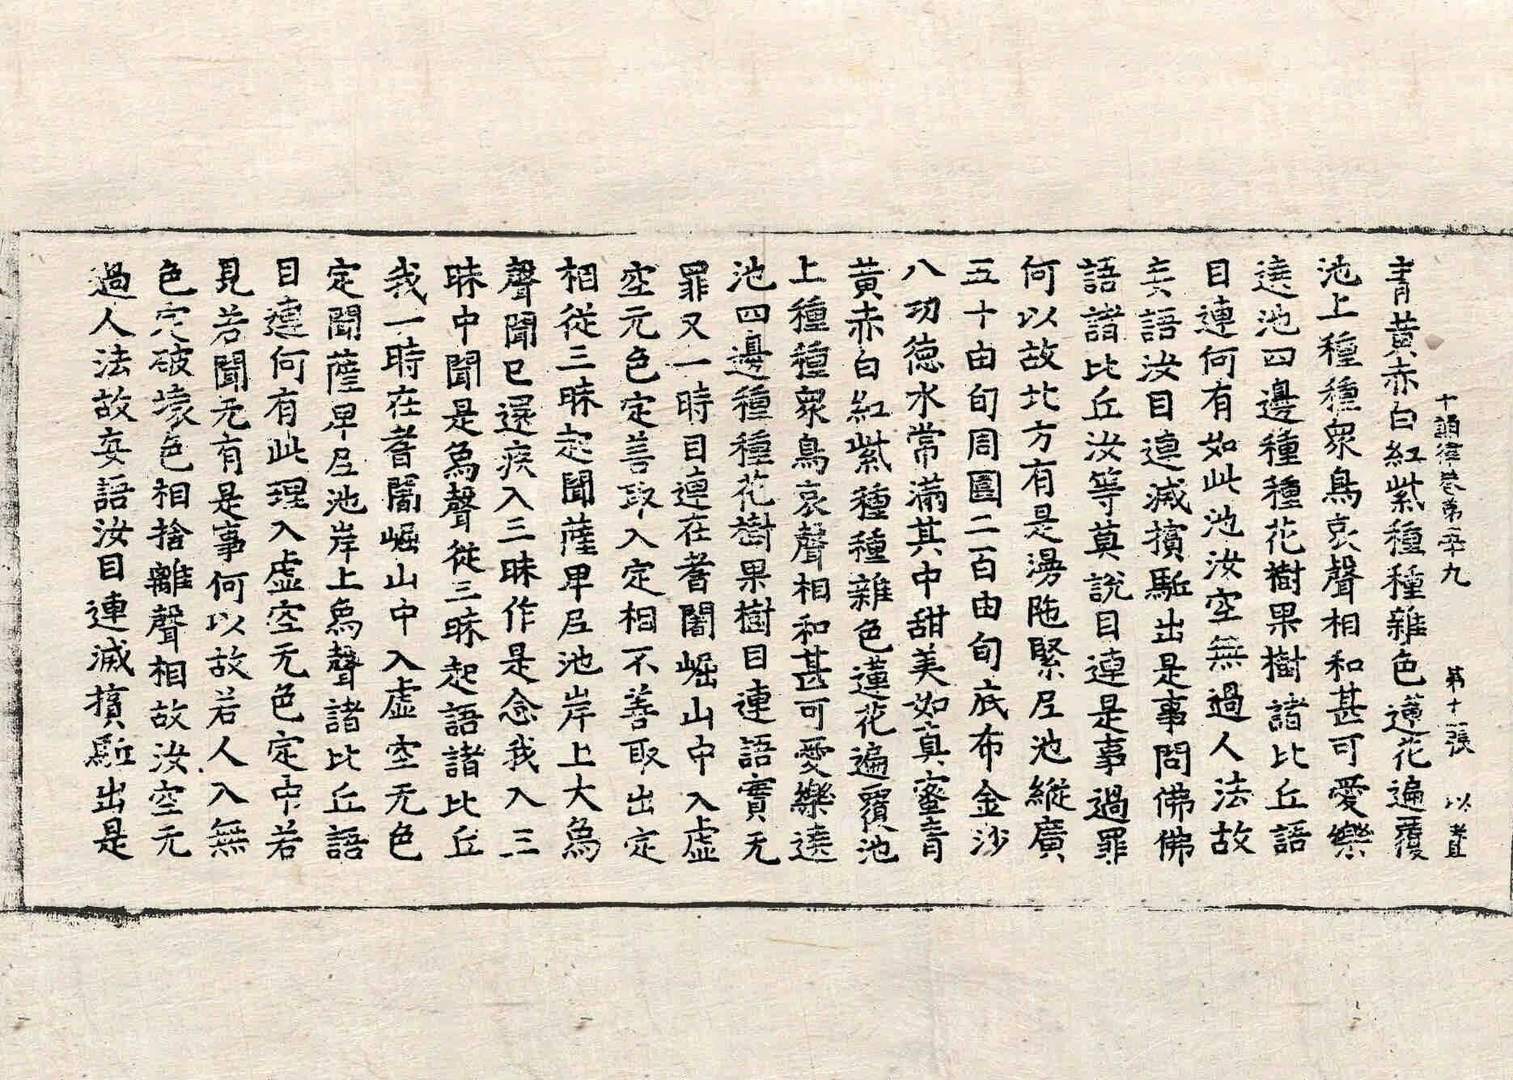 十誦律卷第五十九 第十張 以
青黃赤白紅紫種種雜色蓮花遍覆
池上種種眾鳥哀聲相和甚可愛樂
遶池四邊種種花樹果樹諸比丘語
目連何有如此池汝空無過人法故
妄語汝目連滅擯駈出是事問佛佛
語諸比丘汝等莫說目連是事過罪
何以故北方有是漫陁緊尼池縱廣
五十由旬周圍二百由旬底布金沙
八功德水常滿其中甜美如真蜜青
黃赤白紅紫種種雜色蓮花遍覆池
上種種眾鳥哀聲相和甚可愛樂遶
池四邊種種花樹果樹目連語實无
罪又一時目連在耆闍崛山中入虛
空无色定善取入定相不善取出定
相從三昧起聞薩卑尼池岸上大鳥
聲聞已還疾入三昧作是念我入三
昧中聞是鳥聲從三昧起語諸比丘
我一時在耆闍崛山中入虛空无色
定聞薩卑尼池岸上鳥聲諸比丘語
目連何有此理入虛空无色定中若
見若聞无有是事何以故若人入無
色定破壞色相捨離聲相故汝空无
過人法故妄語汝目連滅擯駈出是